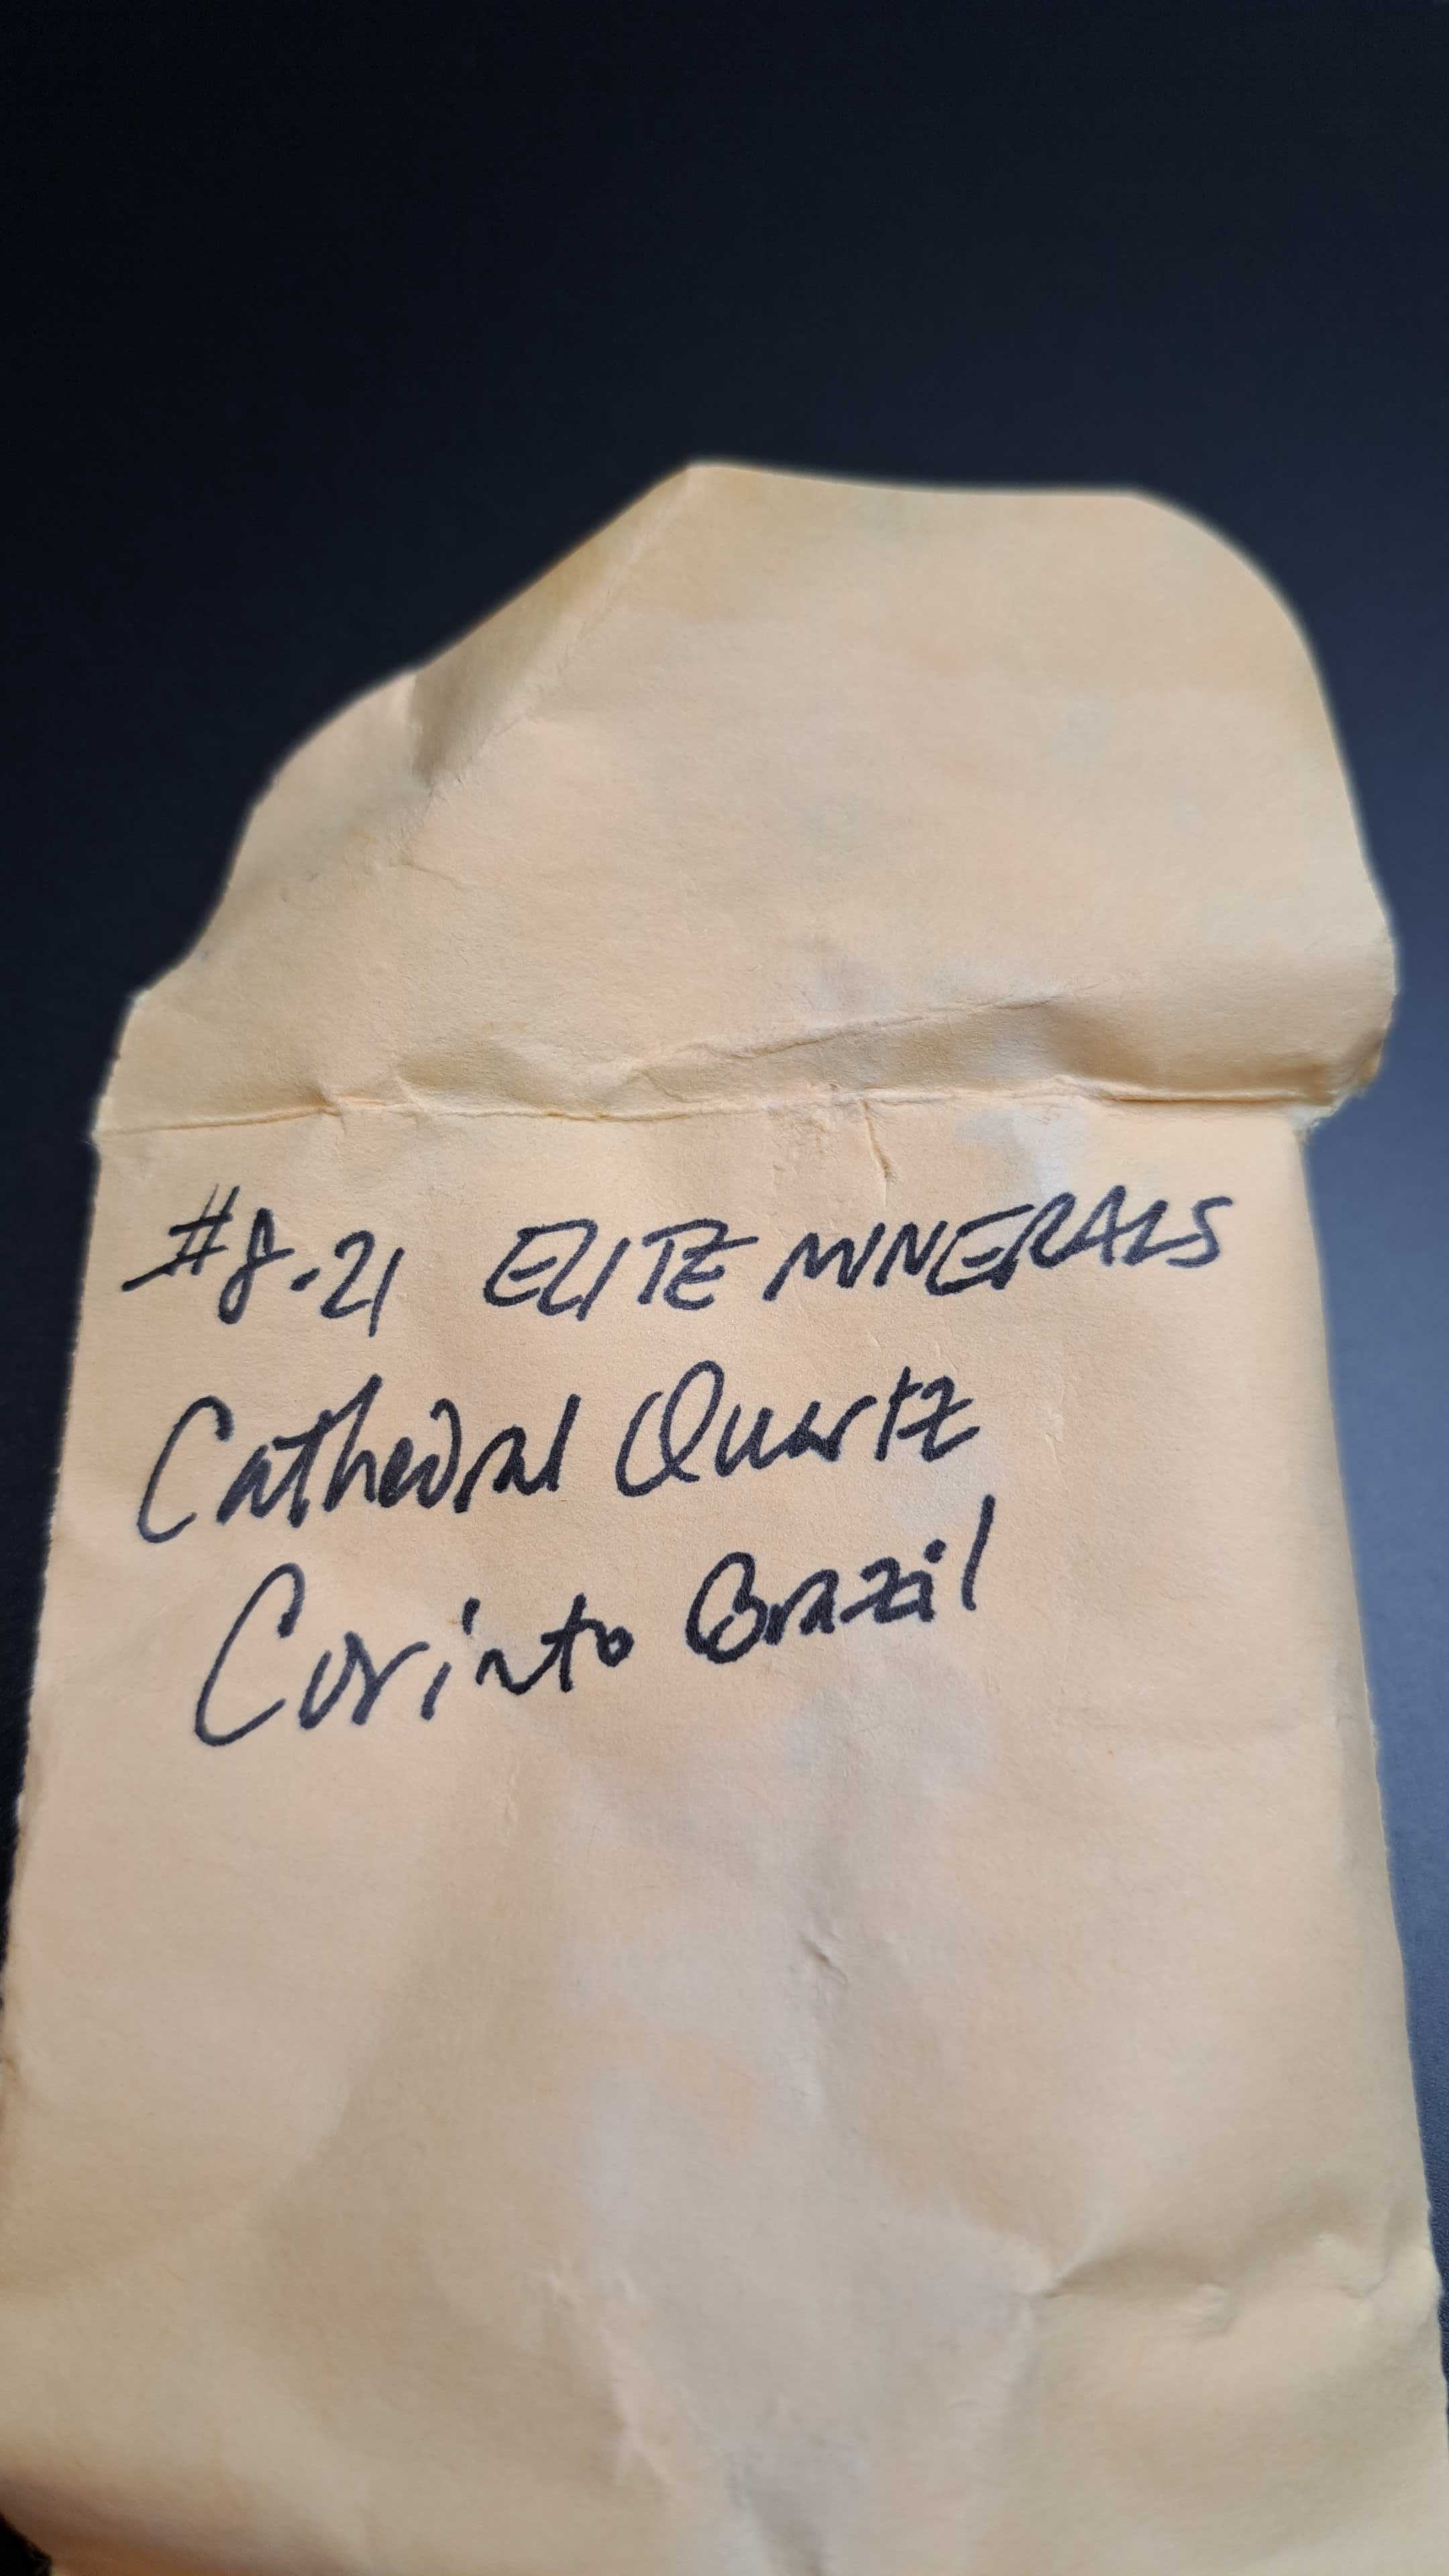 #8.21 ELITE MINERALS
Cathedral Quartz
Corinto Brazil